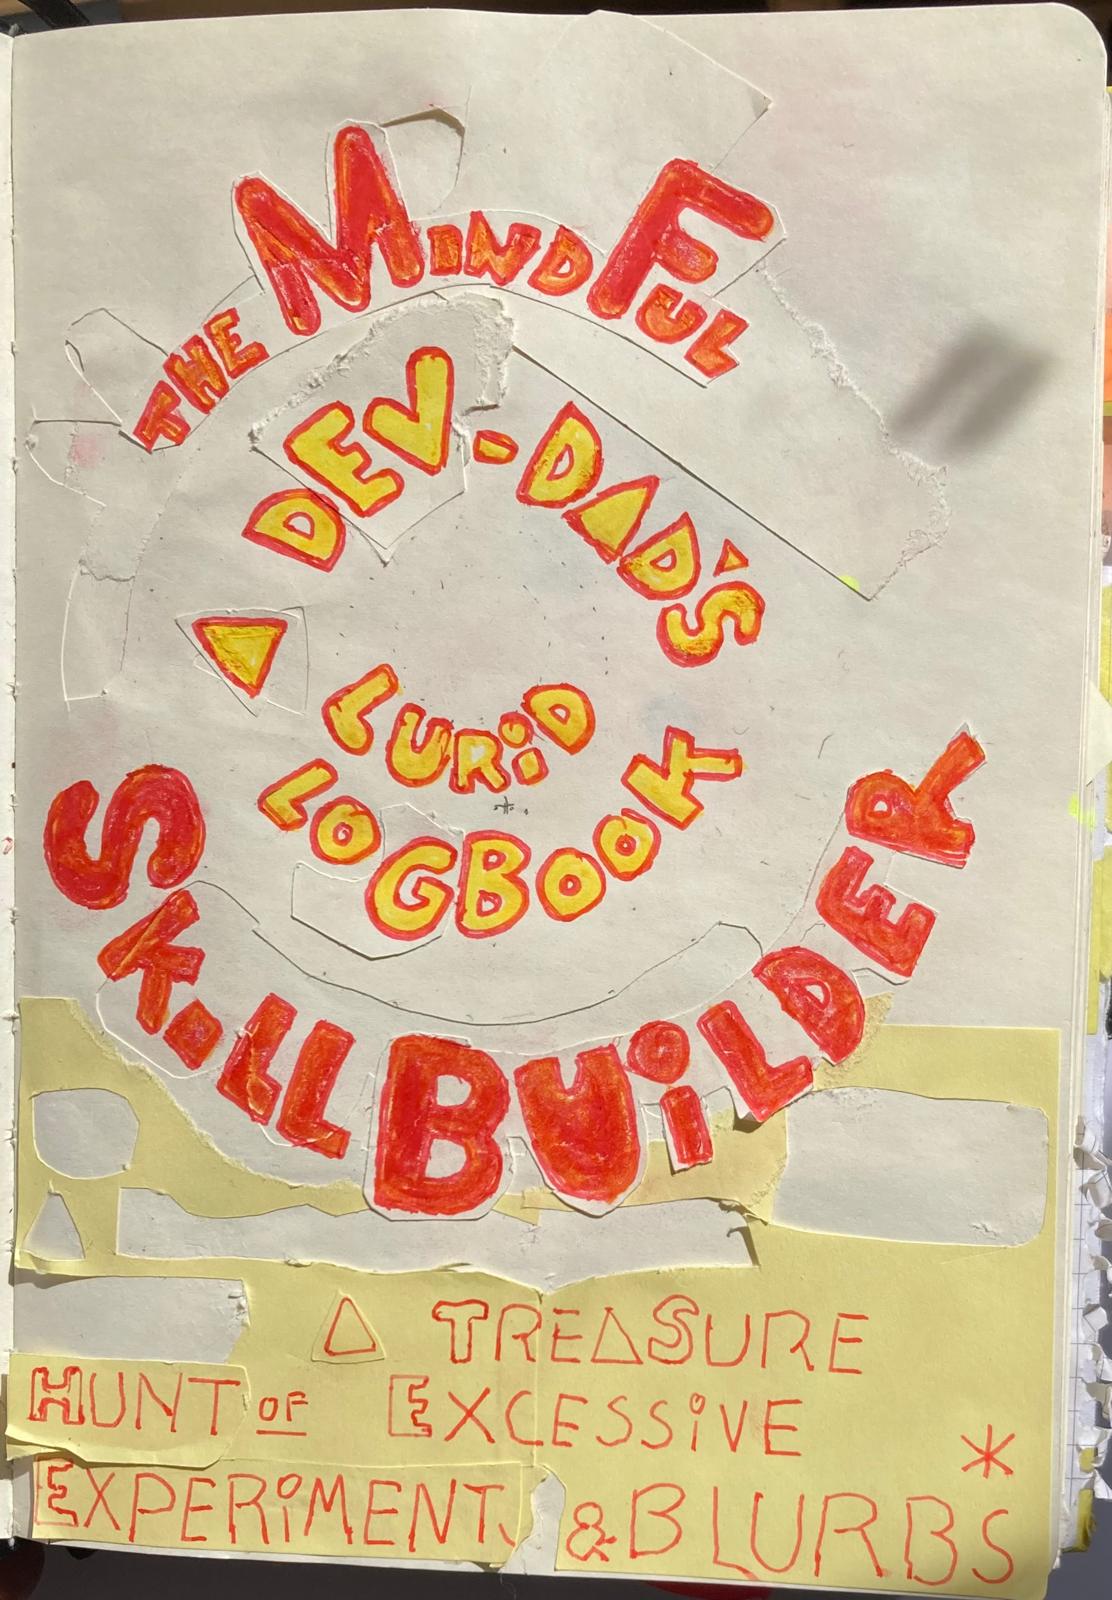 THE MiNDFUL
DEV-DAD'S
A LURiD
LOGBOOK
SKiLLBUiLDER
A TREASURE
HUNT OF EXCESSiVE *
EXPERiMENTS & BLURBS